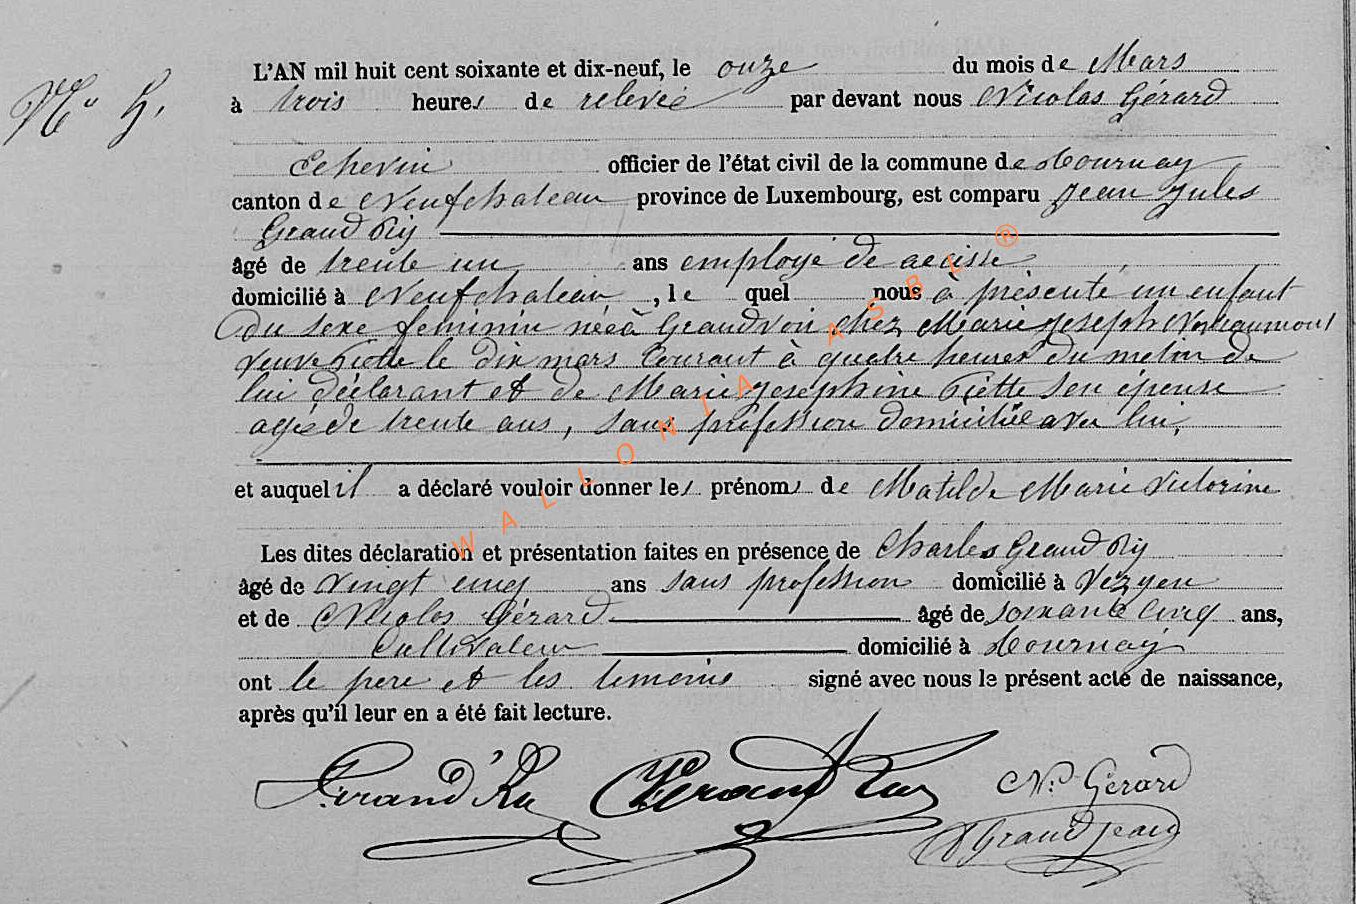 N° 4.
L'AN mil huit cent soixante et dix-neuf, le onze du mois de Mars
à trois heures de relevée par devant nous Nicolas Gérard
Echevin officier de l'état civil de la commune de Tournay
canton de Neufchateau province de Luxembourg, est comparu Jean Jules
Grand Ry
âgé de trente un ans employé de accise
domicilié à Neufchateau, le quel nous à présenté un enfant
du sexe feminin née à Grandvoir chez Marie Joseph
veuve Piette le dix mars courant à quatre heures du matin de
lui déclarant et de Marie Josephine Piette son épouse
agée de trente ans, sans profession domiciliée avec lui,
et auquel il a déclaré vouloir donner les prénoms de Matilde Marie Victorine
Les dites déclaration et présentation faites en présence de Charles Grand Ry
âgé de vingt cinq ans sans profession domicilié à
et de Nicolas Gérard âgé de soixante cinq ans,
Cultivateur domicilié à Tournay
ont le pere et les temoins signé avec nous le présent acte de naissance,
après qu'il leur en a été fait lecture.
Grand'Ry Grand Ry N. Gérard
WALLONIA ASBL ®